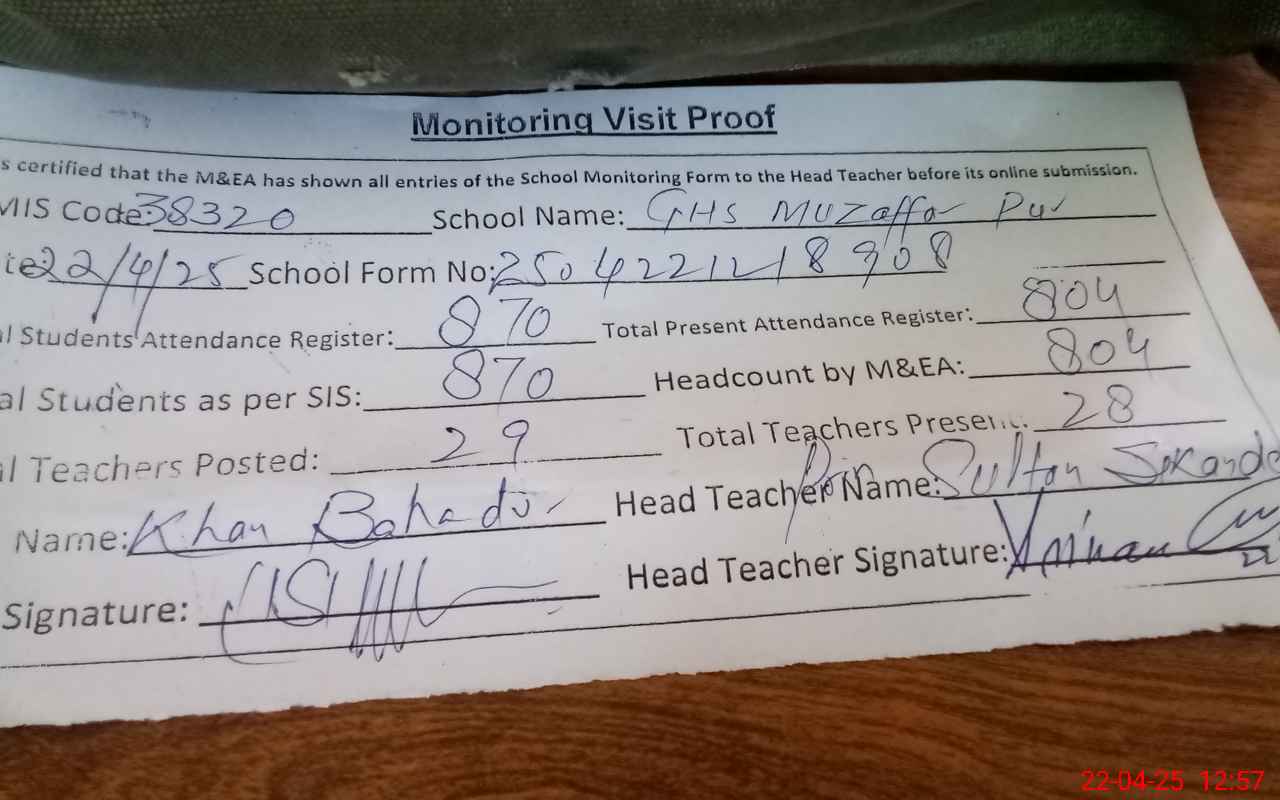 Monitoring Visit Proof
s certified that the M&EA has shown all entries of the School Monitoring Form to the Head Teacher before its online submission.
MIS Code: 38320 School Name: GHS Muzaffar Pur
te 22/4/25 School Form No: 2504221218908
l Students Attendance Register: 870 Total Present Attendance Register: 804
al Students as per SIS: 870 Headcount by M&EA: 804
al Teachers Posted: 29 Total Teachers Present: 28
Name: Khan Bahadur Head Teacher Name: Sultan
Signature: Head Teacher Signature:
22-04-25 12:57